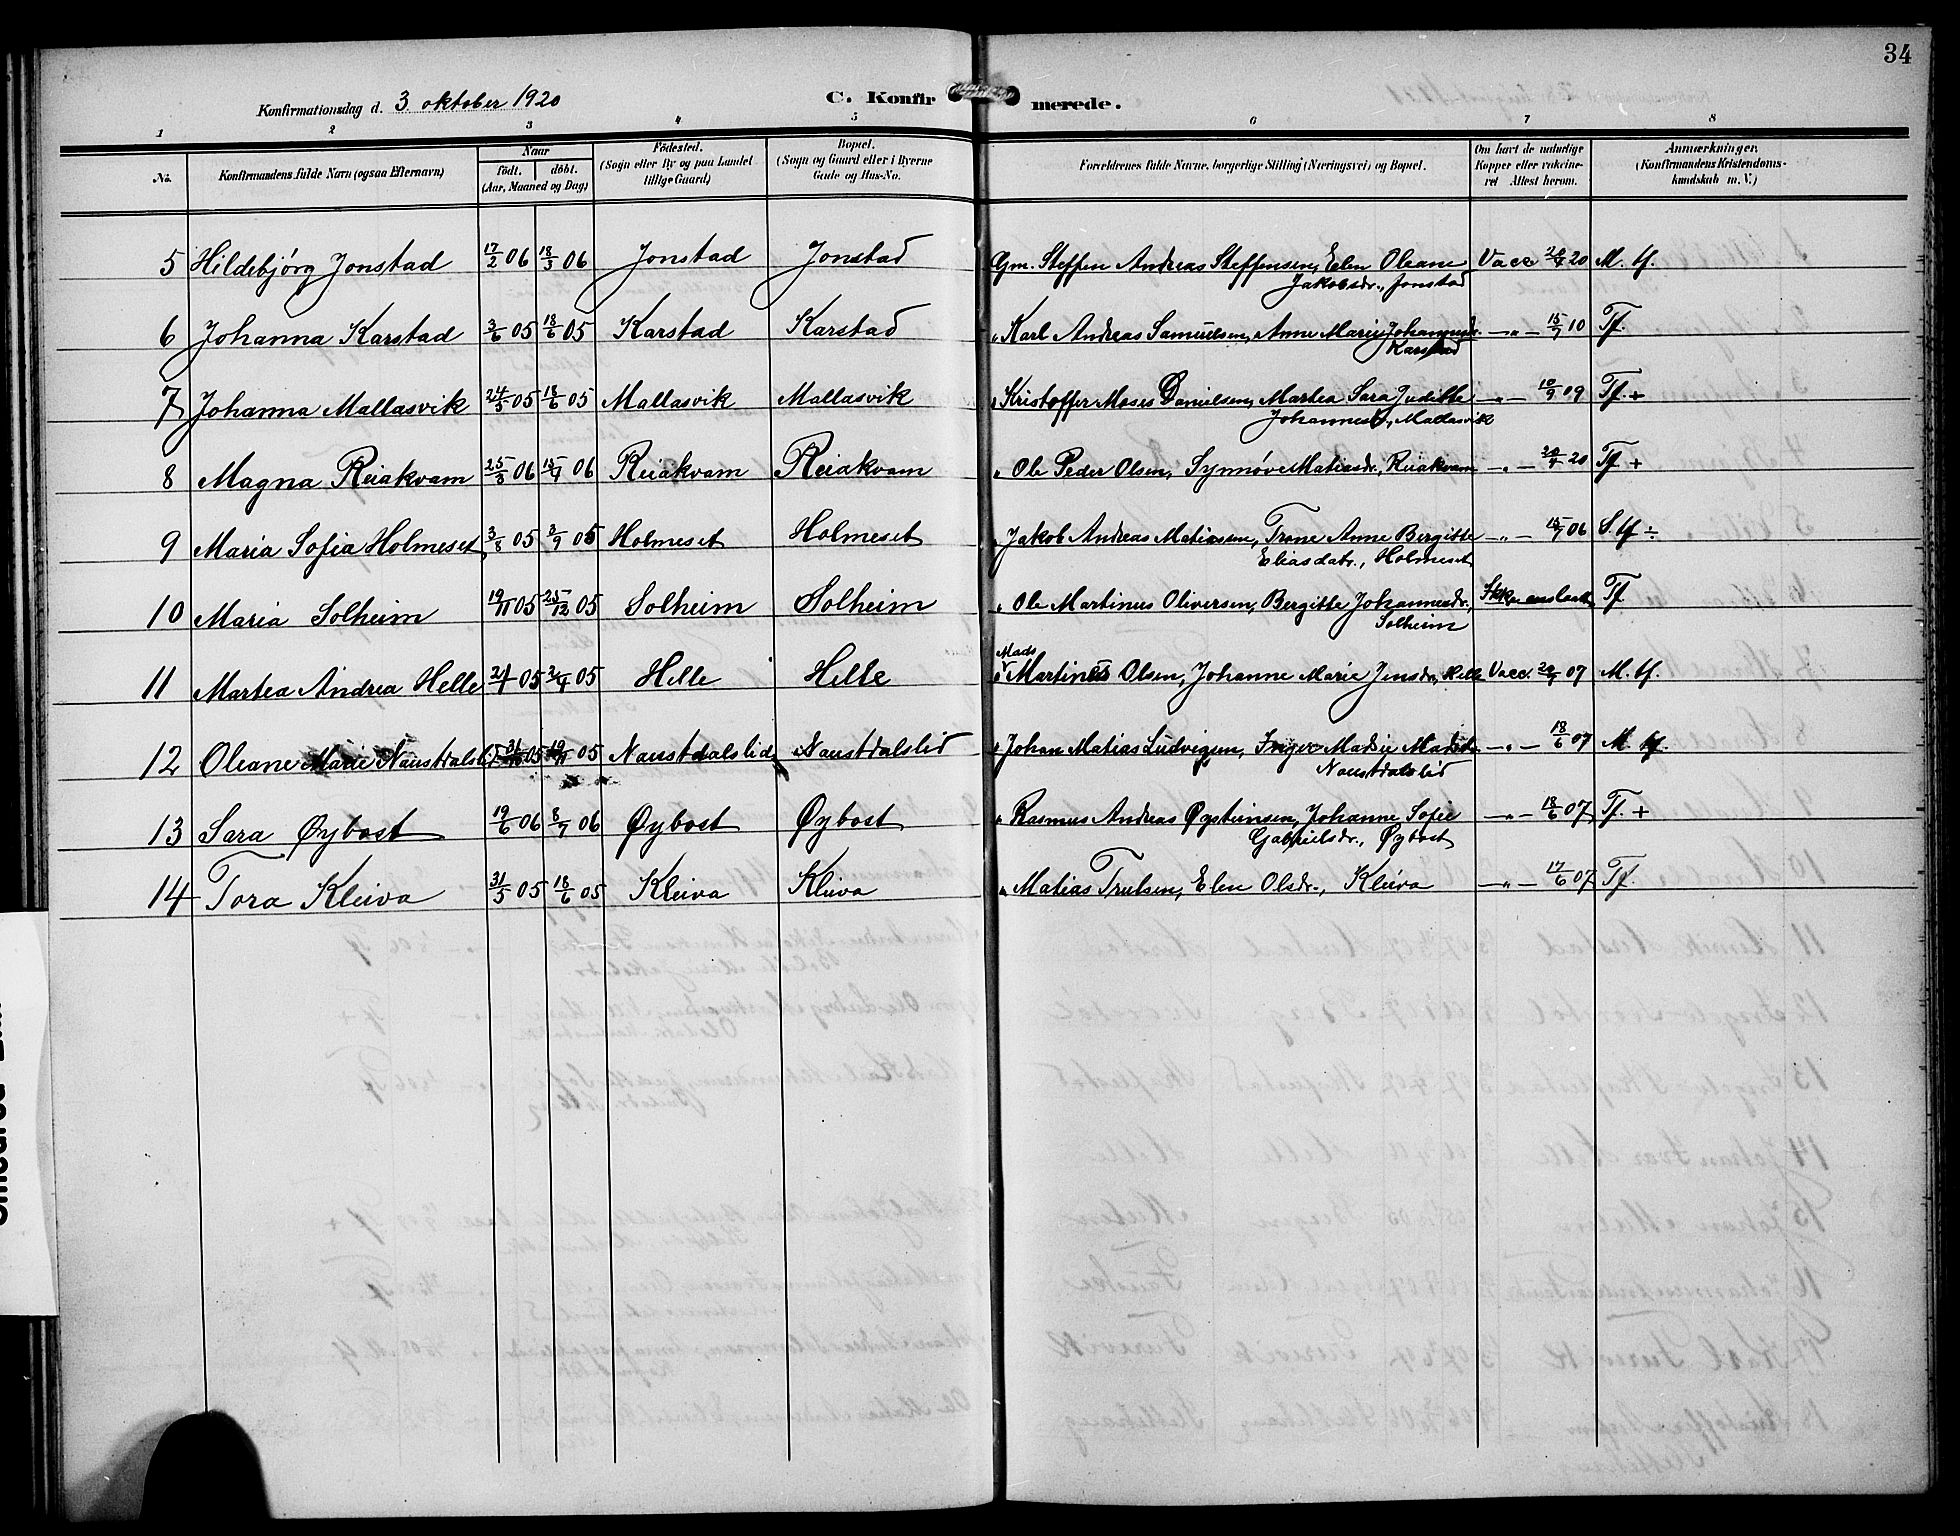 34
Konfirmationsdag d. 3 oktober 1920 C. Konfir merede.
1 2 3 4 5 6 7 8
No. Konfirmandens fulde Navn (ogsaa Efternavn) Naar födt. döbt. (Aar, Maaned og Dag) Födested. (Sogn eller By og paa Landet tillige Gaard) Bopæl. (Sogn og Gaard eller i Byerne Gade og Hus-No. Forældrenes fulde Navne, borgerlige Stilling (Næringsvei) og Bopæl. Om havt de naturlige Kopper eller vakcineret Attest herom. Anmærkninger. (Konfirmandens Kristendomskundskab m. V.)
5 Hildebjörg Jonstad 17/2 06 18/3 06 Jonstad Jonstad Gm. Steffen Andreas Steffensen, Elen Oleane Vacc 20 M. tf.
Jakobsdr., Jonstad
6 Johanna Karstad 3/6 05 18/6 05 Karstad Karstad " Karl Andreas Samuelsen, Anne Marie Johannesdr. —"— 15/7 10 Tf.
Karstad
7 Johanna Mallasvik 24/5 05 18/6 05 Mallasvik Mallasvik " Kristoffer Moses Danielsen, Martea Sara Juditte —"— 10/9 09 Tf. +
Johannesd., Mallasvik
8 Magna Reiakvam 25/3 06 15/4 06 Reiakvam Reiakvam " Ole Peder Olsen, Synnöve Matiasdr., Reiakvam —"— 20 Tf +
9 Maria Sofia Holmeset, 3/8 05 3/9 05 Holmeset Holmeset " Jakob Andreas Matiassen, Trone Anne Bergitte —"— 15/7 06 S. tf ÷
Eliasdatr., Holmeset
10 Maria Solheim 19/11 05 25/12 05 Solheim Solheim " Ole Martinus Oliversen, Bergitte Johannesdr., Tf
Solheim
Mads
11 Martea Andrea Helle 05 05 Helle Helle " Martinus Olsen, Johanne Marie Jensdr., Helle Vacc. 07 M. tf.
12 Oleane Marie Naustdalslid 05 19/11 05 Naustdalslid Naustdalslid " Johan Matias Ludvigsen, Inger Marie Madsdr. —"— 18/6 07 M. tf
Naustdalslid
13 Sara Øybost 19/6 06 8/7 06 Øybost Øybost " Rasmus Andreas Øysteinsen, Johanne Sofie —"— 18/6 07 Tf. +
Gabrielsdr., Øybost
14 Tora Kleiva 31/5 05 18/6 05 Kleiva Kleiva " Matias Trulsen, Elen Olsdr., Kleiva —"— 17/6 07 Tf.